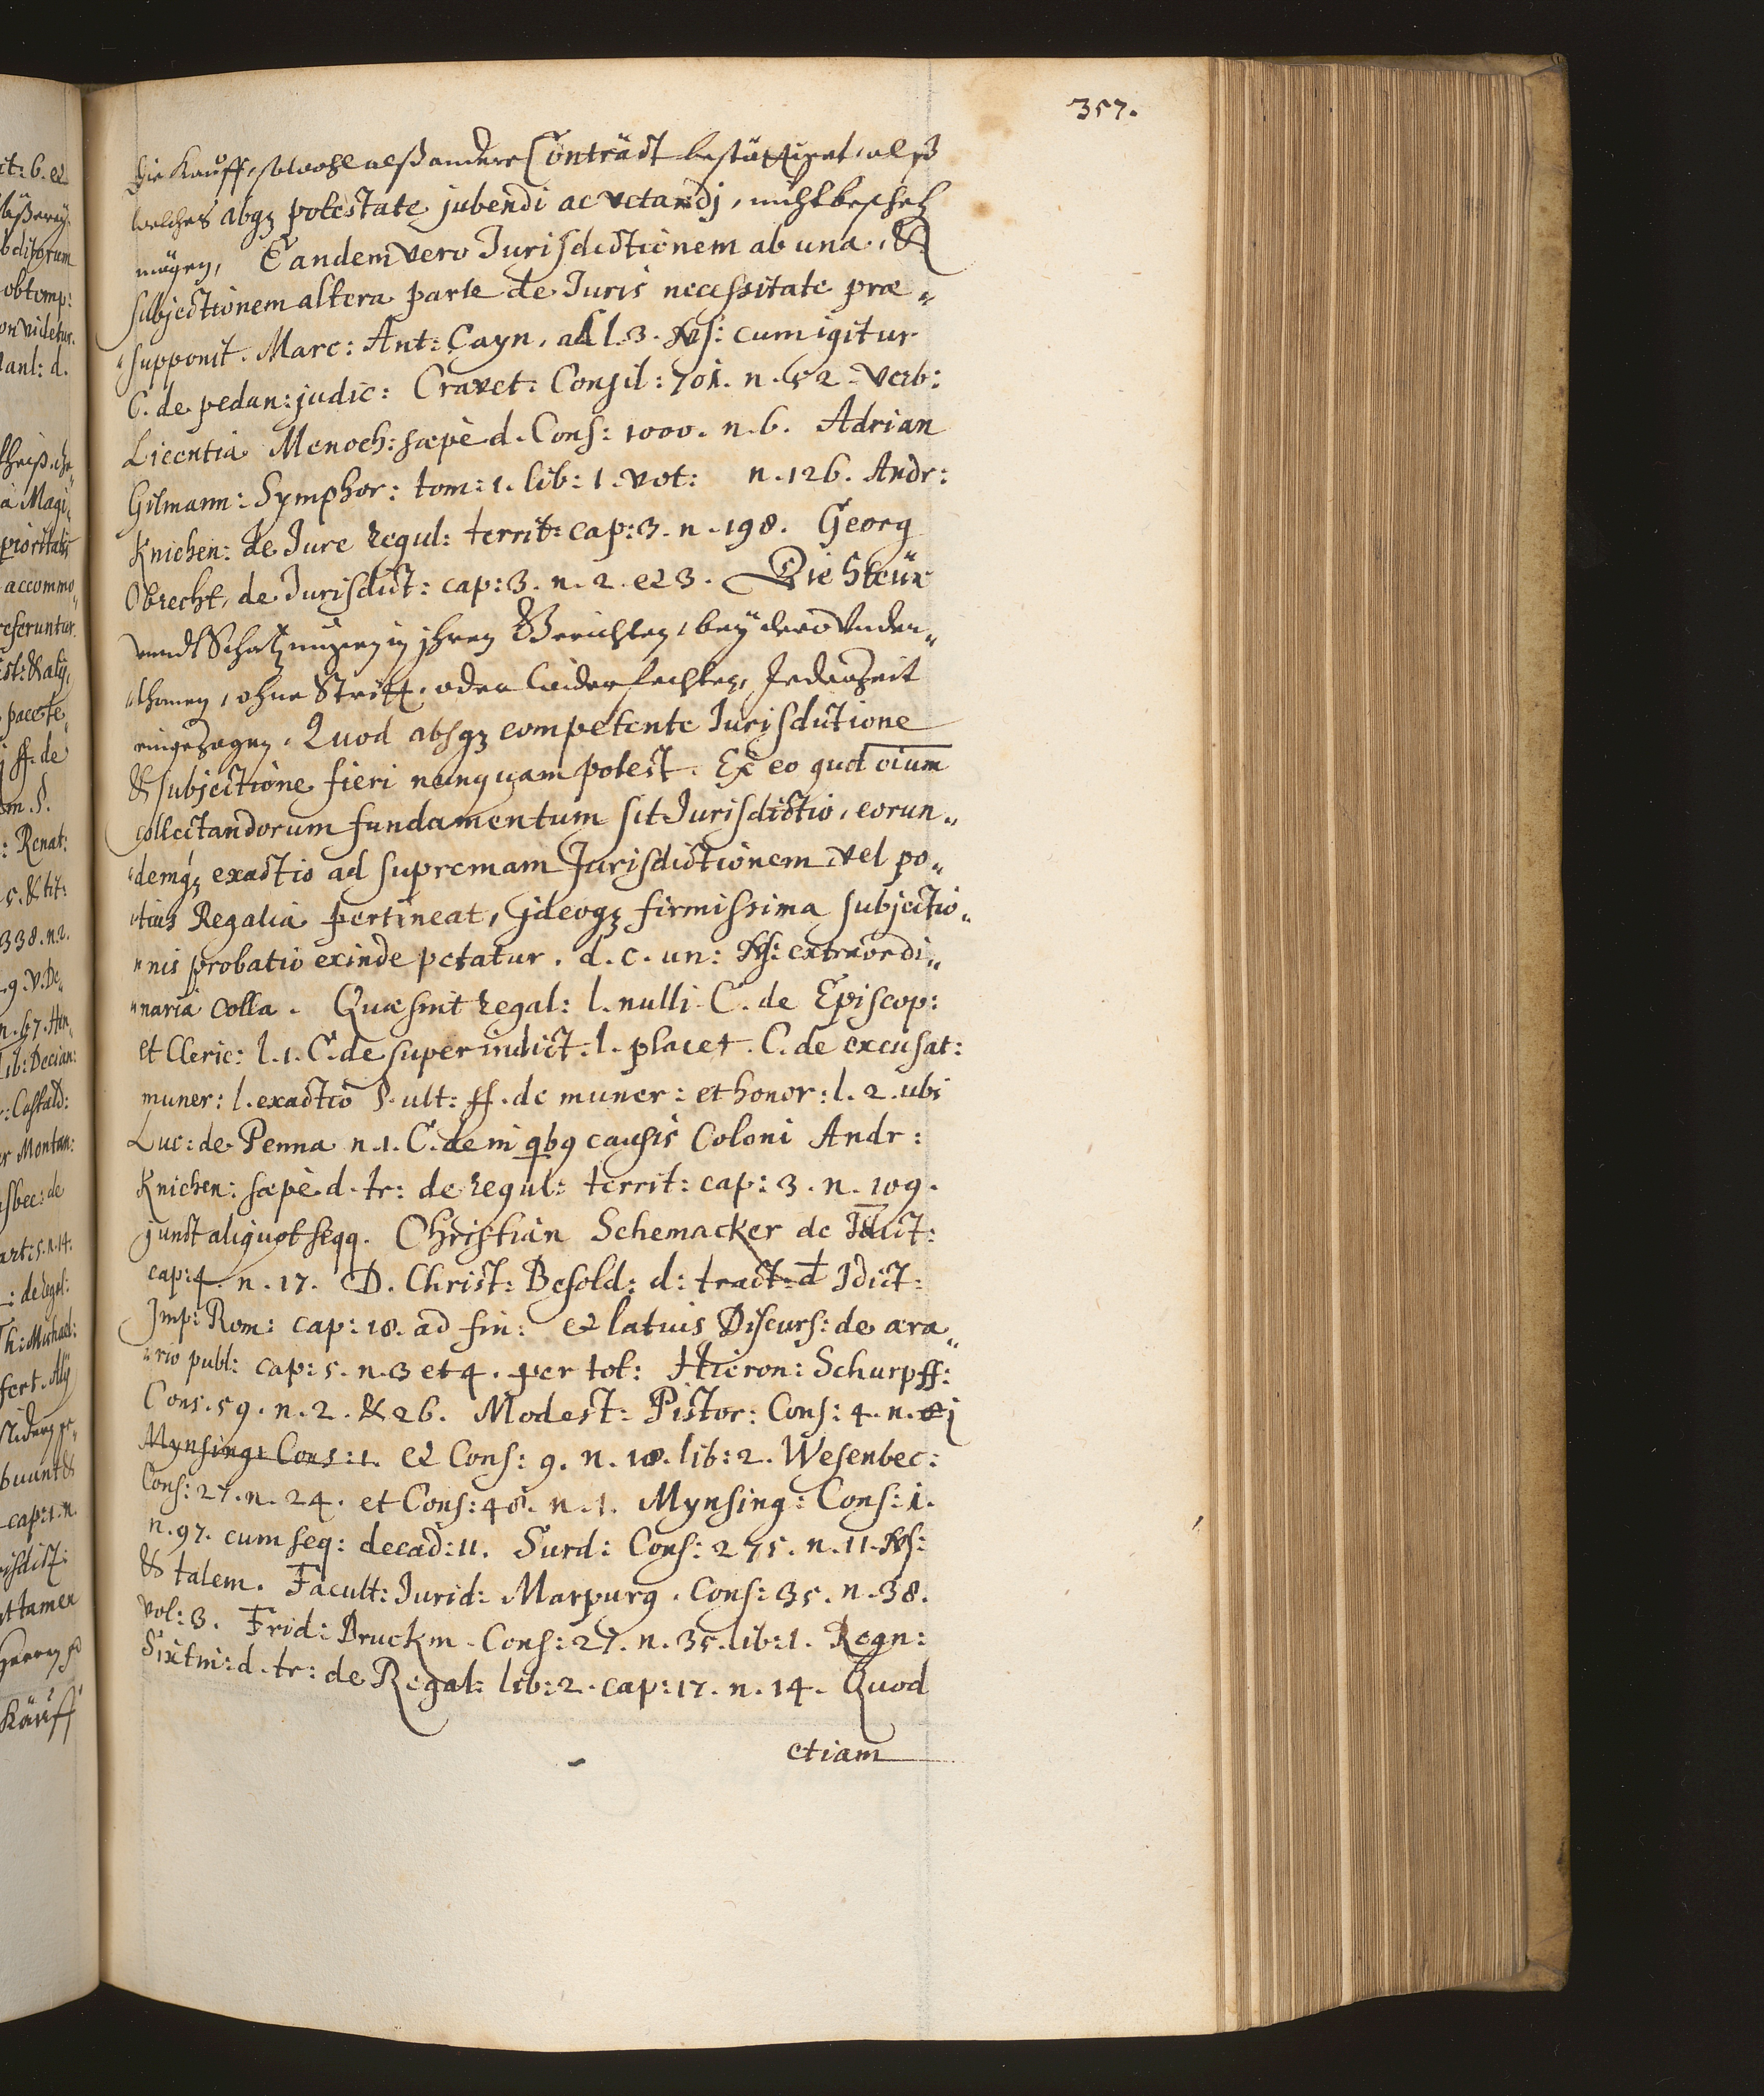 357.
die Kauff, sowohl alß andere Contràct bestättiget, alß
welches absqz potestate jubendi ac vetandj, nicht beschehen
mögen, Eandem vero Jurisdictionem ab una, &
subjectionem altera parte de Juris necessitate præ„
„supponit. Marc: Ant: Cayn. ad l. 3. Vs: cum igitur
C. de pedan: judic: Cravet: Consil: 701. n. 52. verb:
Licentia Menoch: sæpè d. Cons: 1000. n. 6. Adrian
Gilmann: Symphor: tom: 1. lib: 1. vot: n. 126. Andr:
Knichen: de Jure regul: territ: cap: 3. n. 198. Georg
Obrecht, de Jurisdict: cap: 3. n. 2. et 3. Die Steür
vnndt Schatzungen in jhren Gerichten, bey dero Vnder„
„thonen, ohne Stritt, oder widerfechten, Jederzeit
eingezogen. Quod absqz competente Jurisdictione
& subjectione fieri nunquam potest. Ex eo quod oium
collectandorum fundamentum sit Jurisdictio, eorun„
„demqz exactio ad supremam Jurisdictionem vel po„
„tius Regalia pertineat, jdeoqz firmissima subjectio„
„nis probatio exinde petatur. d. c. un: Vs: extraordi„
„naria colla. Quæ sint regal: l. nulli C. de Episcop:
et Cleric: l. 1. C. de superindict: l. placet. C. de excusat:
muner: l. exactio §. ult: ff. de muner: et honor: l. 2. ubi
Luc: de Penna n. 1. C. de in qbq causis Coloni Andr:
Knichen: sæpè d. tr: de regul: territ: cap: 3. n. 109.
junct aliquot seqq. Christian Schemacker de Jdict:
cap: 4. n. 17. D. Christ: Besold: d: tract: d Jdict:
Jmp: Rom: cap: 18. ad fin: et latius Discurs: de æra„
„rio publ: cap: 5. n. 3 et 4. per tot: Hieron: Schurpff:
Cons. 59. n. 2. & 26. Modest: Pistor: Cons: 4. n.
Mynsing: Cons: 1. et Cons: 9. n. 18. lib: 2. Wesenbec:
Cons: 27. n. 24. et Cons: 48. n. 1. Mynsing: Cons: 1.
n. 97. cum seq: decad: 11. Surd: Cons: 275. n. 11. Vs:
& talem. Facult: Jurid: Marpurg. Cons: 35. n. 38.
vol: 3. Frid: Pruckm. Cons: 27. n. 35. lib: 1. Regn:
Sixtin: d. tr: de Regal: lib: 2. cap: 17. n. 14. Quod
etiam